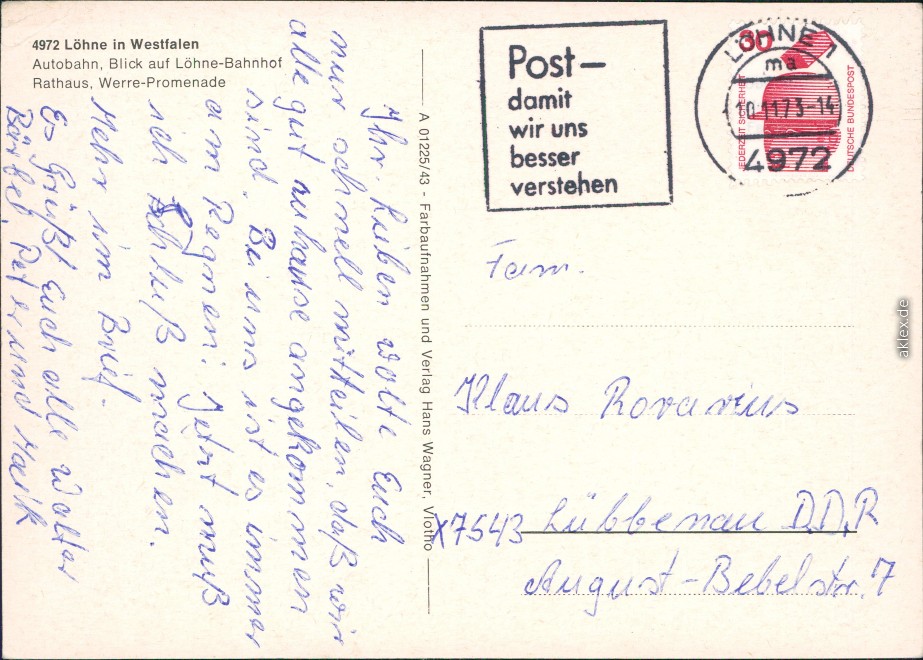 4972 Löhne in Westfalen
Autobahn, Blick auf Löhne-Bahnhof
Rathaus, Werre-Promenade
Ihr Lieben wolte Euch
nur schnell mitteilen, daß wir
alle gut zuhause angekommen
sind. Bei uns ist es immer
am Regnen. Jetzt muß
ich Schluß machen.
Mehr im Brief.
Es Grüßt Euch alle Walter
Bärbel, Peter und Maik
A 01225/43 - Farbaufnahmen und Verlag Hans Wagner, Vlotho
Post –
damit
wir uns
besser
verstehen
LÖHNE 1
ma
10.11.73-14
4972
JEDERZEIT SICHERHEIT
DEUTSCHE BUNDESPOST
Fam.
Klaus Rovarius
X7543 Lübbenau D.D.R
August-Bebelstr. 7
aklex.de